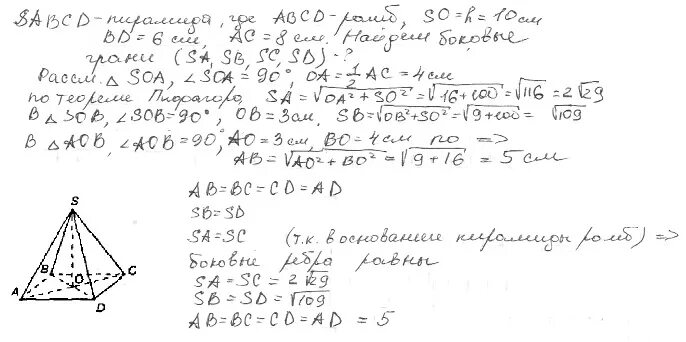 SABCD-пирамида, где ABCD-ромб, SO=h=10см
BD=6см, AC=8см. Найдем боковые
грани (SA, SB, SC, SD)-?
Рассм. △ SOA, ∠SOA=90°, OA=½AC=4см
по теореме Пифагора, SA=√OA²+SO²=√16+100=√116=2√29
В △SOB, ∠SOB=90°, OB=3см, SB=√OB²+SO²=√9+100=√109
В △AOB, ∠AOB=90°, AO=3см, BO=4см по =>
AB=√AO²+BO²=√9+16=5см
AB=BC=CD=AD
SB=SD
SA=SC (т.к. в основание пирамиды ромб) =>
боковые ребра равны
SA=SC=2√29
SB=SD=√109
AB=BC=CD=AD=5
S
B
O
C
A
D